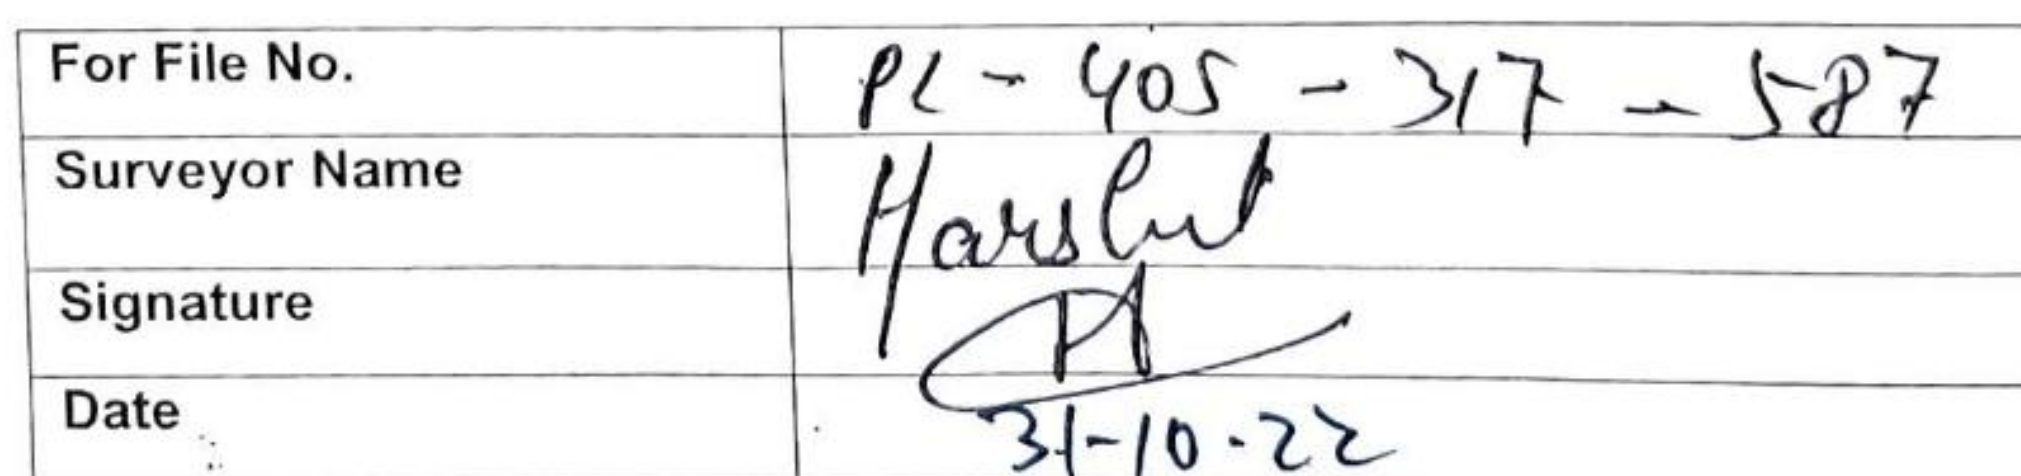 For File No. PL - 405 - 317 - 587
Surveyor Name Harshit
Signature
Date 31-10-22